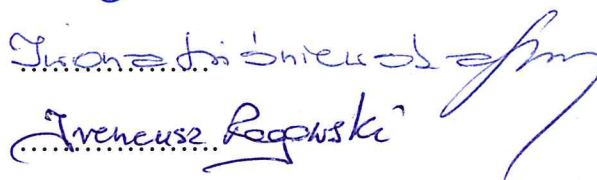 Iwona Wiśniewska
Ireneusz Rogowski